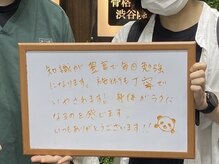 骨格
渋谷
知識が豊富で毎回勉強
になります。施術も丁寧で
いやされます。身体がラクに
なるのを感じます。
いつもありがとうございます!!